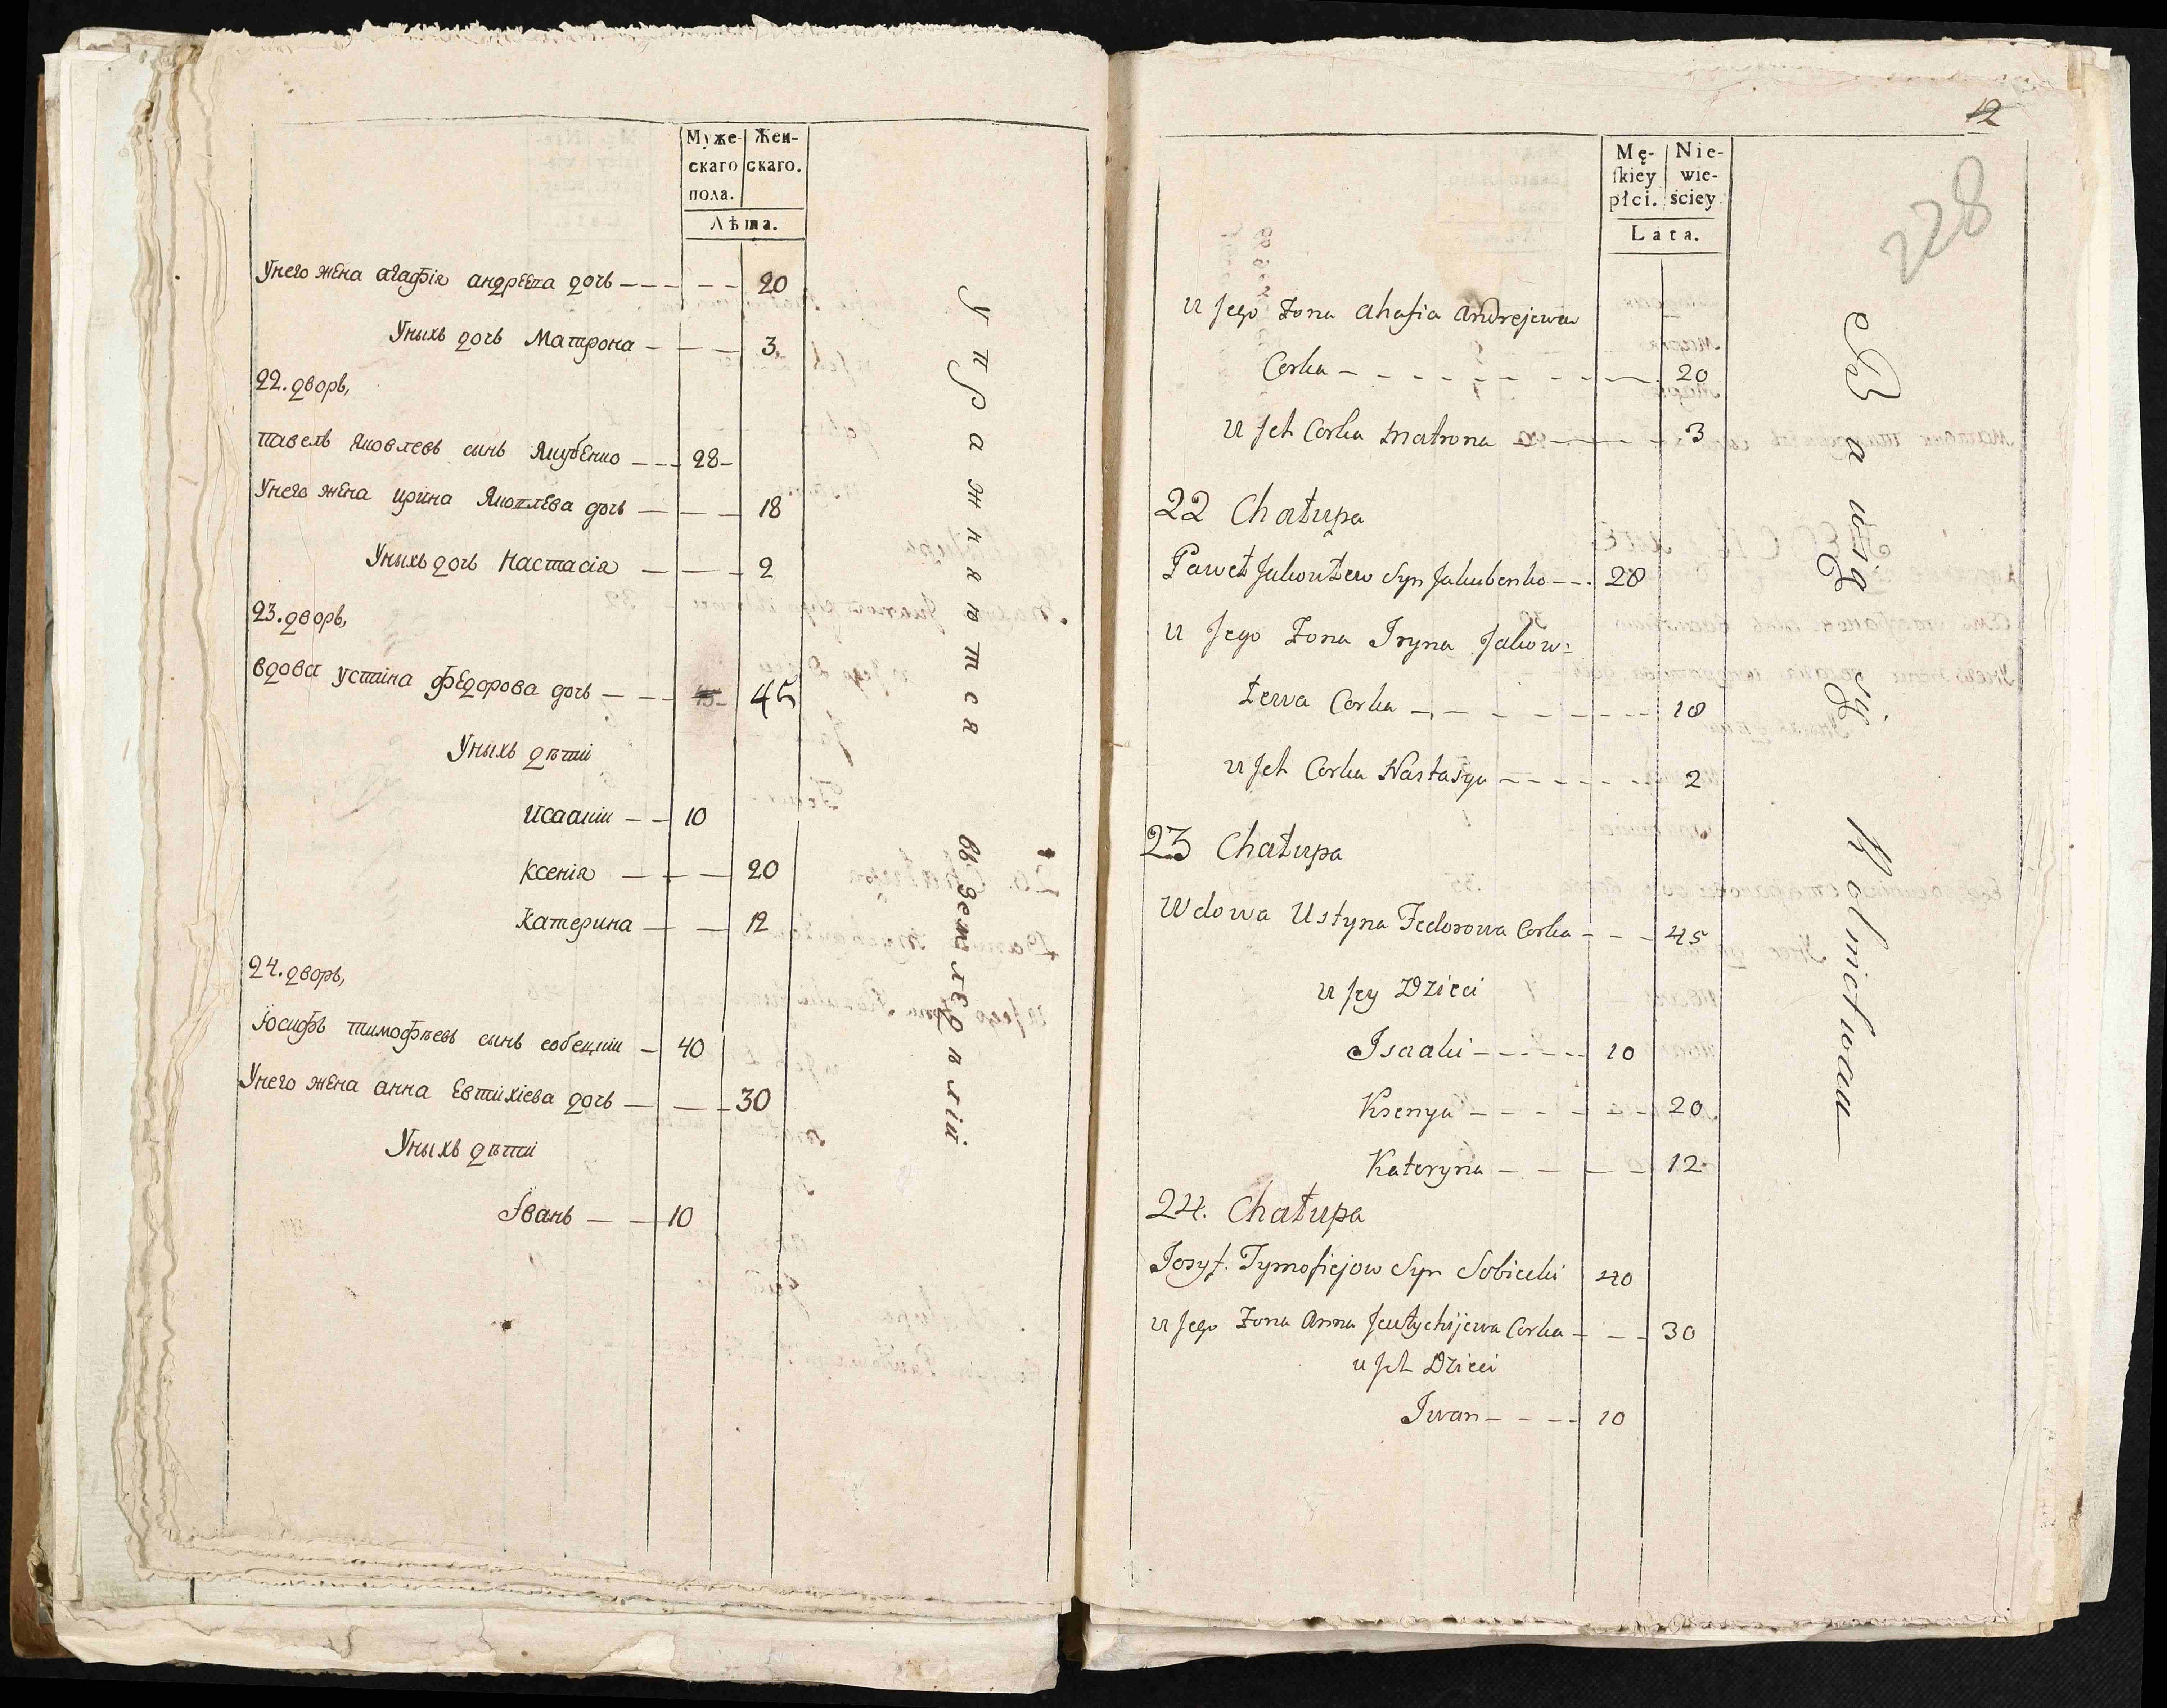 Муже- Жен-
скаго скаго.
пола.
Лѣта.
Унего жена агафiя андрѣева дочь — — — — 20
Уныхъ дочь Матрона — — — 3
22. дворъ,
павелъ яковлевъ сынъ Якубенко — — — 28 —
Унего жена ирина Яковлева дочь — — — 18
Уныхъ дочь Настасiя — — — 2
23. дворъ,
вдова устина федорова дочь — — — 45
Уныхъ дѣти
Исаакiи — — 10
Ксенiя — — — 20
Катерина — — 12
24. дворъ,
Iосифъ тимофѣевъ сынъ собецкiи — 40
Унего жена анна Евтихiева дочь — — — 30
Уныхъ дѣти
Iванъ — — 10
Упражняются въ земледѣлiи
12
228
Mę- Nie-
ſkiey wie-
płci. ściey
Lata.
u Jego Zona Ahafia Andrejewa
Corka — — — — — — — 20
u Jch Corka Matrona — — — 3
22 Chałupa
Paweł Jakowlew Syn Jakubenko — — 28
u Jego Zona Iryna Jakow=
lewa Corka — — — — — — 18
u Jch Corka Nastasya — — — — — 2
23 Chałupa
Wdowa Ustyna Fedorowa Corka — — — 45
u Jey Dzieci
Isaaki — — — — 10
Ksenya — — — — — 20
Kateryna — — — — 12
24. Chałupa
Iosyf Tymofiejow Syn Sobiecki 40
u Jego Zona Anna Jewtychijewa Corka — — — 30
u Jch Dzieci
Iwan — — — 10
Bawią się Rolnictwem